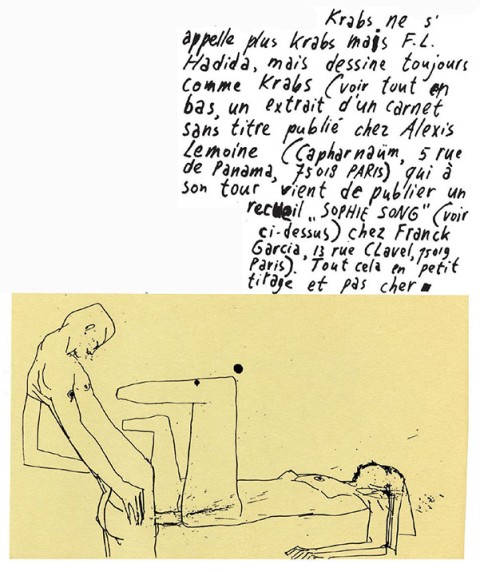 Krabs ne s'
appelle plus Krabs mais F.L.
Hadida, mais dessine toujours
comme Krabs (voir tout en
bas, un extrait d'un carnet
sans titre publié chez Alexis
Lemoine (Capharnaüm, 5 rue
de Panama, 75018 PARIS) qui à
son tour vient de publier un
recueil „SOPHIE SONG" (voir
ci-dessus) chez Franck
Garcia, 13 rue Clavel, 75019
Paris). Tout cela en petit
tirage et pas cher